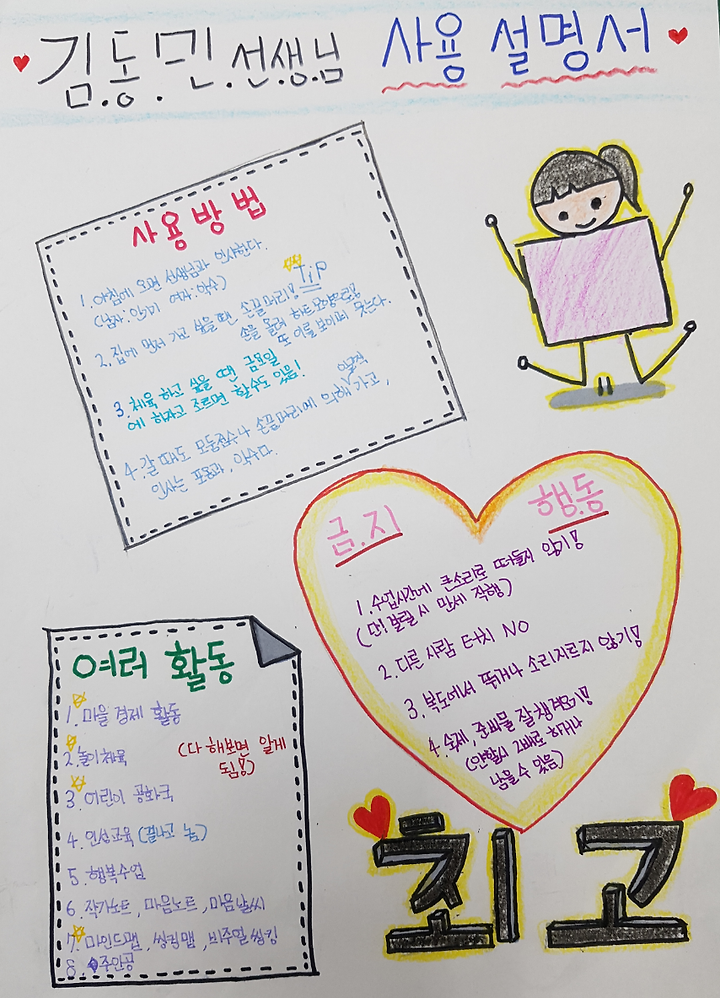 김.동.민.선.생.님 사용 설명서
사용방법
1. 아침에 오면 선생님과 인사한다.
(남자:안기 여자:악수)
2. 집에 먼저 가고 싶을 땐 손끝머리! Tip
손을 올려 하트모양으로!
또 이를 보이며 웃는다.
3. 체육 하고 싶을 땐 금요일
에 하자고 조르면 할수도 있음!
4. 갈 때도 모둠점수나 손끝머리에 의해 일찍 가고,
인사는 포옹과, 악수다.
금.지 행.동
1. 수업시간에 큰소리로 떠들지 않기!
(떠 걸릴 시 만세 직행)
2. 다른 사람 터치 NO
3. 복도에서 뛰거나 소리지르지 않기!
4. 숙제, 준비물 잘 챙겨오기!
(안할시 2배로 하거나
남을 수 있음)
여러 활동
1. 마을 경제 활동
2. 놀이체육
(다 해보면 알게
됨!)
3. 어린이 공화국
4. 인성교육 (끝나고 놈)
5. 행복수업
6. 작가노트, 마음노트, 마음날씨
7. 마인드맵, 씽킹맵, 비주얼씽킹
8. 주인공
최고